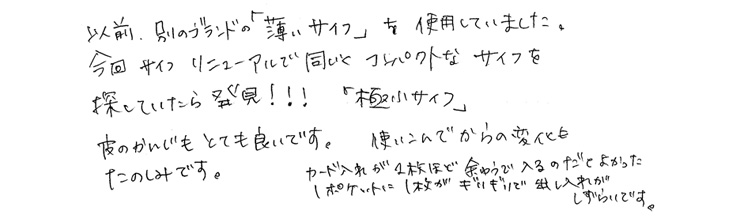 以前、別のブランドの「薄いサイフ」を使用していました。
今回 サイフ リニューアルで同じく コンパクトな サイフを
探していたら 発見!!! 「極小サイフ」
皮のかんじも とても良いです。 使いこんでからの変化も
たのしみです。
カード入れが2枚ほど 余ゆうで入るのだとよかった
1ポケットに1枚が ぎりぎりで 出し入れが
しずらいです。